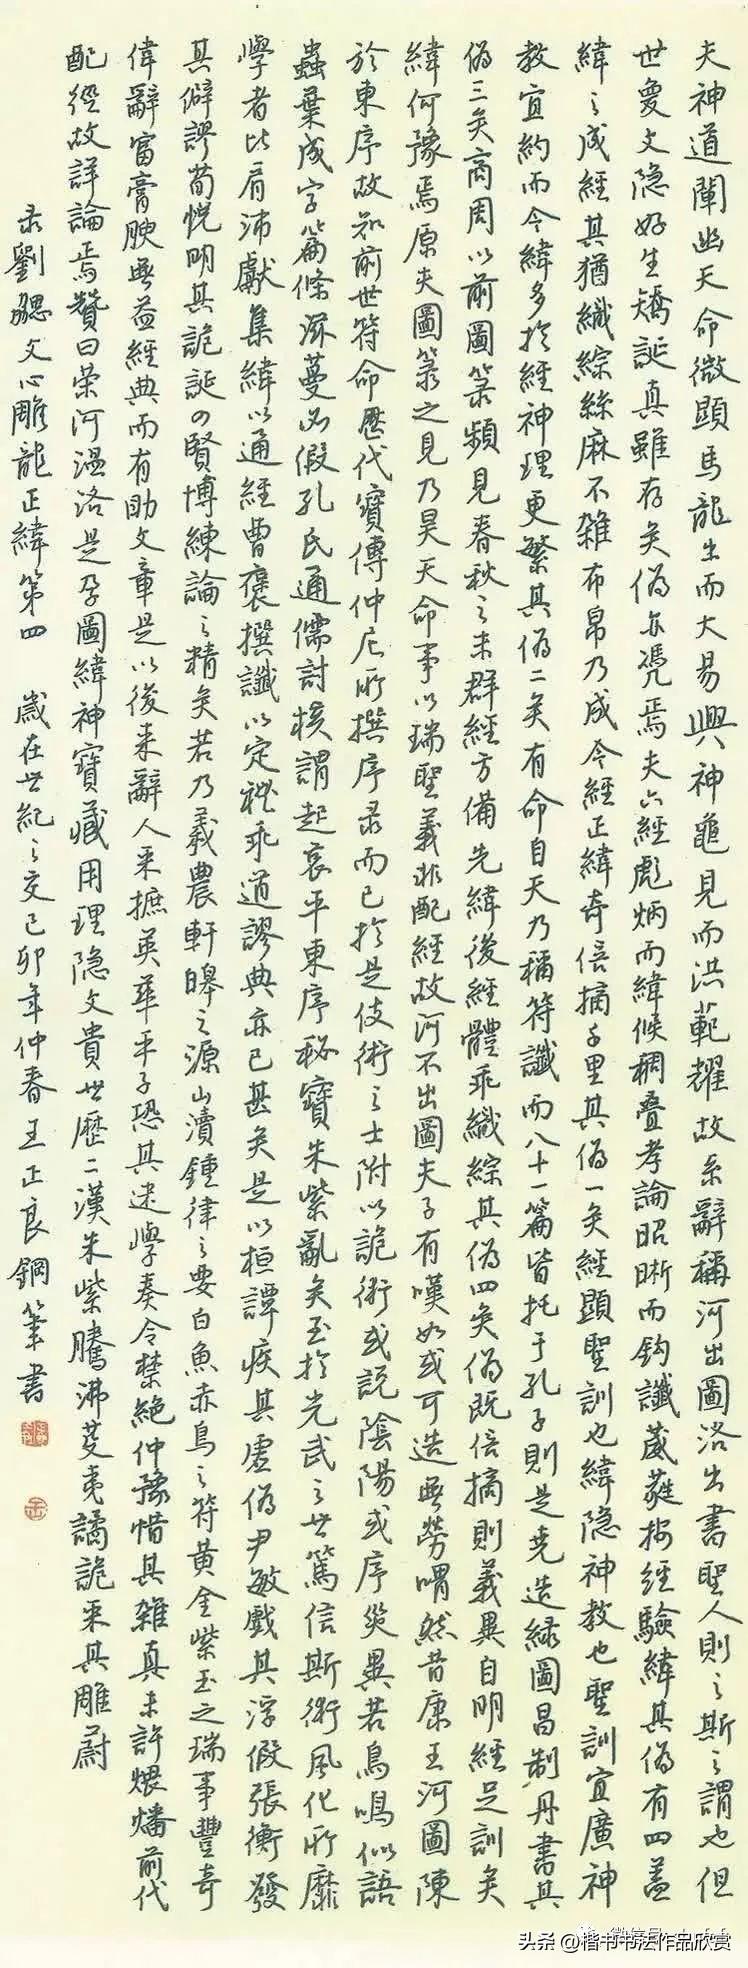 夫神道闡幽天命微顯馬龍出而大易興神龜見而洪範耀故系辭稱河出圖洛出書聖人則之斯之謂也但
世敻文隐好生矯誕真雖存矣偽亦憑焉夫六經彪炳而緯候稠疊孝論昭晰而鈎讖葳蕤按經驗緯其偽有四蓋
緯之成經其猶織綜絲麻不雜布帛乃成今經正緯奇倍擿千里其偽一矣經顯聖訓也緯隐神教也聖訓宜廣神
教宜約而今緯多於經神理更繁其偽二矣有命自天乃稱符讖而八十一篇皆托于孔子則是堯造緑圖昌制丹書其
偽三矣商周以前圖箓頻見春秋之末群經方備先緯後經體乖織綜其偽四矣偽既倍摘則義異自明經足訓矣
緯何豫焉原夫圖箓之見乃昊天命事以瑞聖義非配經故河不出圖夫子有嘆如或可造無勞喟然昔康王河圖陳
於東序故知前世符命歷代寶傳仲尼所撰序录而已於是伎術之士附以詭術或説陰陽或序災異若鳥鳴似語
蟲葉成字篇條滋蔓必假孔氏通儒討核謂起哀平東序秘寶朱紫亂矣至於光武之世篤信斯術風化所靡
學者比肩沛獻集緯以通經曹褒撰讖以定禮乖道謬典亦已甚矣是以桓譚疾其虚偽尹敏戲其浮假張衡發
其僻謬荀悦明其詭誕四賢博練論之精矣若乃義農軒皞之源山瀆鍾律之要白魚赤烏之符黄金紫玉之瑞事豐奇
偉辭富膏腴無益經典而有助文章是以後來辭人采摭英華平子恐其迷學奏令禁絶仲豫惜其雜真未許煨燔前代
配經故詳論焉贊曰荣河温洛是孕圖緯神寶藏用理隐文貴世歷二漢朱紫騰沸芟夷譎詭采其雕蔚
录劉勰文心雕龍正緯第四 歲在世紀之交己卯年仲春王正良鋼筆書
头条 @楷书书法作品欣赏